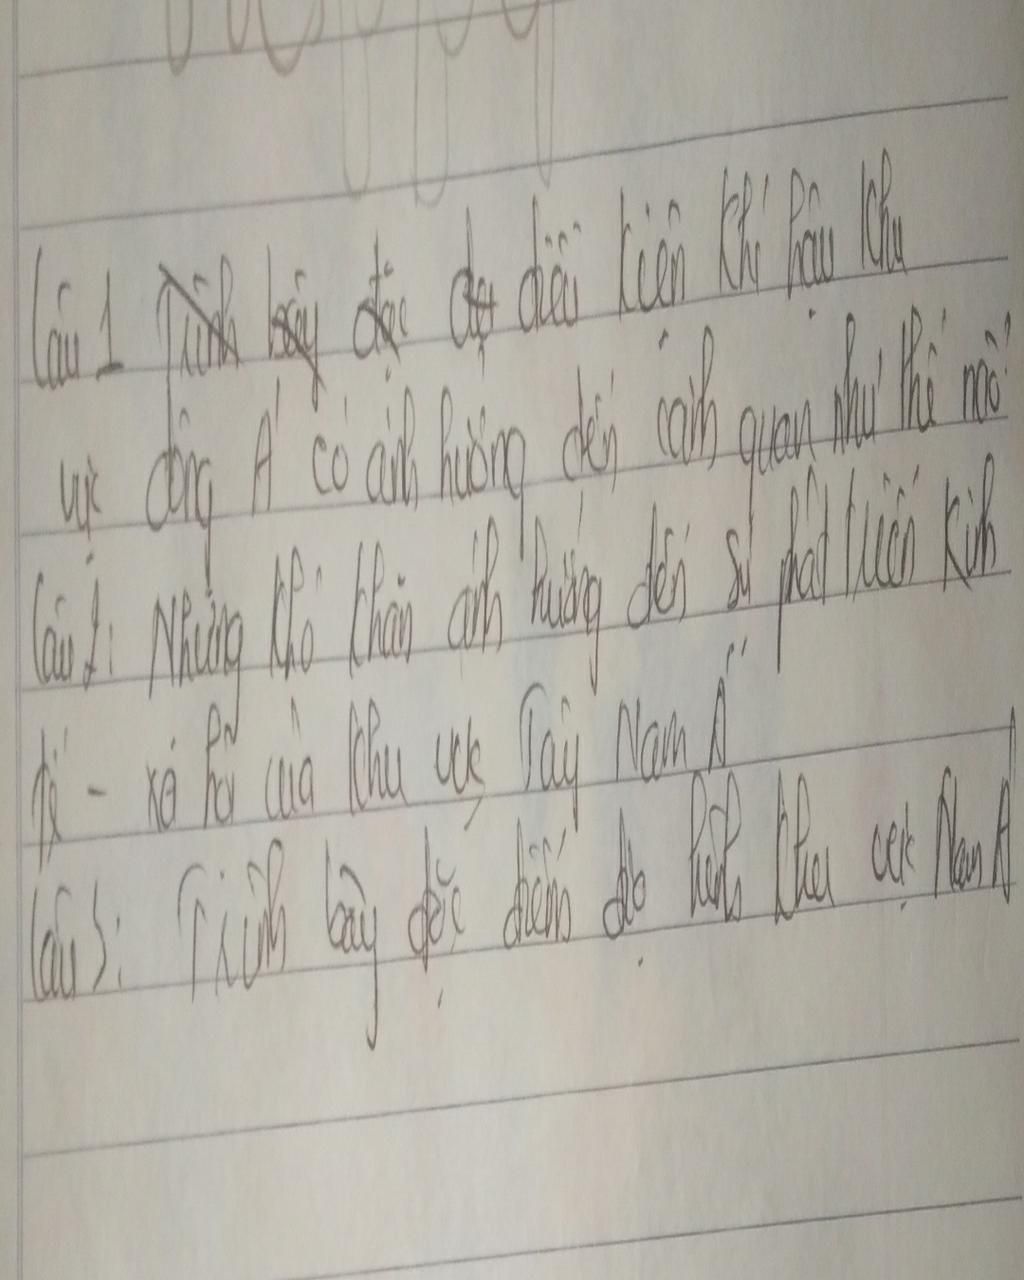 Câu 1 Trình bày đặc điều kiện khí hậu khu
vực đông Á có ảnh hưởng đến cảnh quan như thế nào
Câu 2: Những khó khăn ảnh hưởng đến sự phát triển kinh
tế - xã hội của khu vực Tây Nam Á
Câu 3: Trình bày đặc điểm địa hình khu vực Nam Á